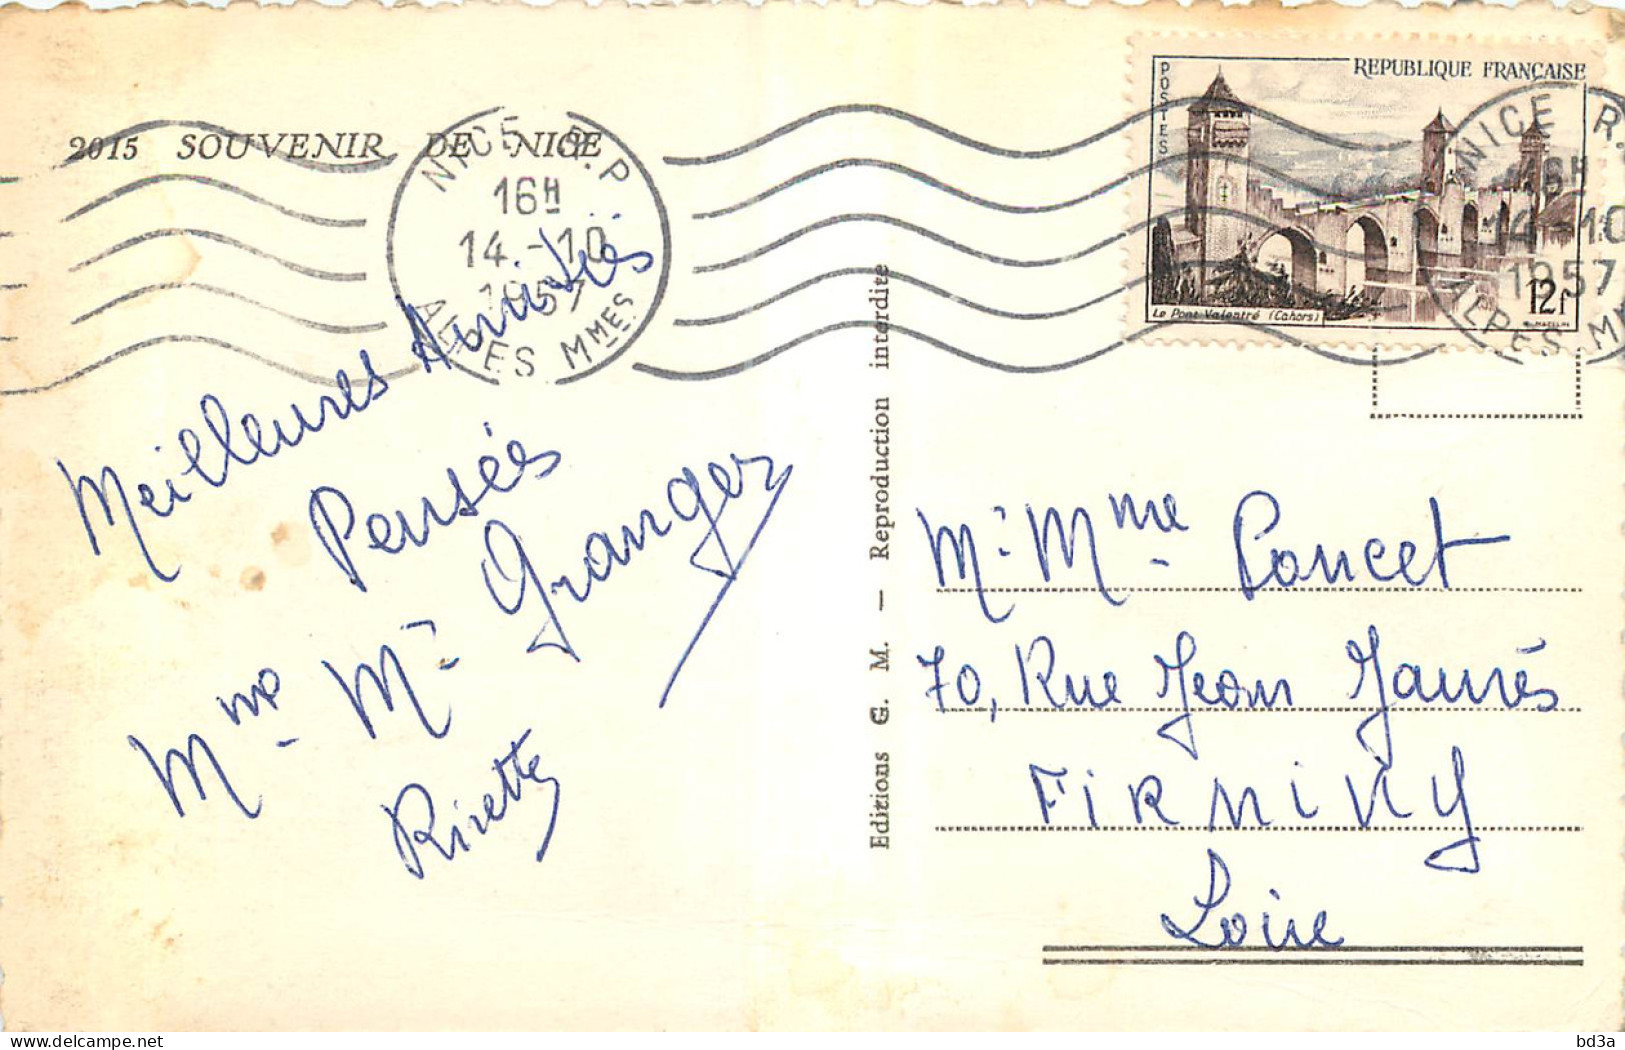 2015 SOUVENIR DE NICE
NICE R.P
16H
14.-10
1957
ALPES MMES
POSTES
REPUBLIQUE FRANÇAISE
Le Pont Valentré (Cahors)
12f
NICE R.
16H
14-10
1957
ALPES MM
Meilleures Amitiés
Pensées
Mme Mr Granger
Editions G. M. — Reproduction interdite
Mr Mme Poncet
70, Rue Jean Jaurés
FIRMINY
Loire
delcampe.net
bd3a